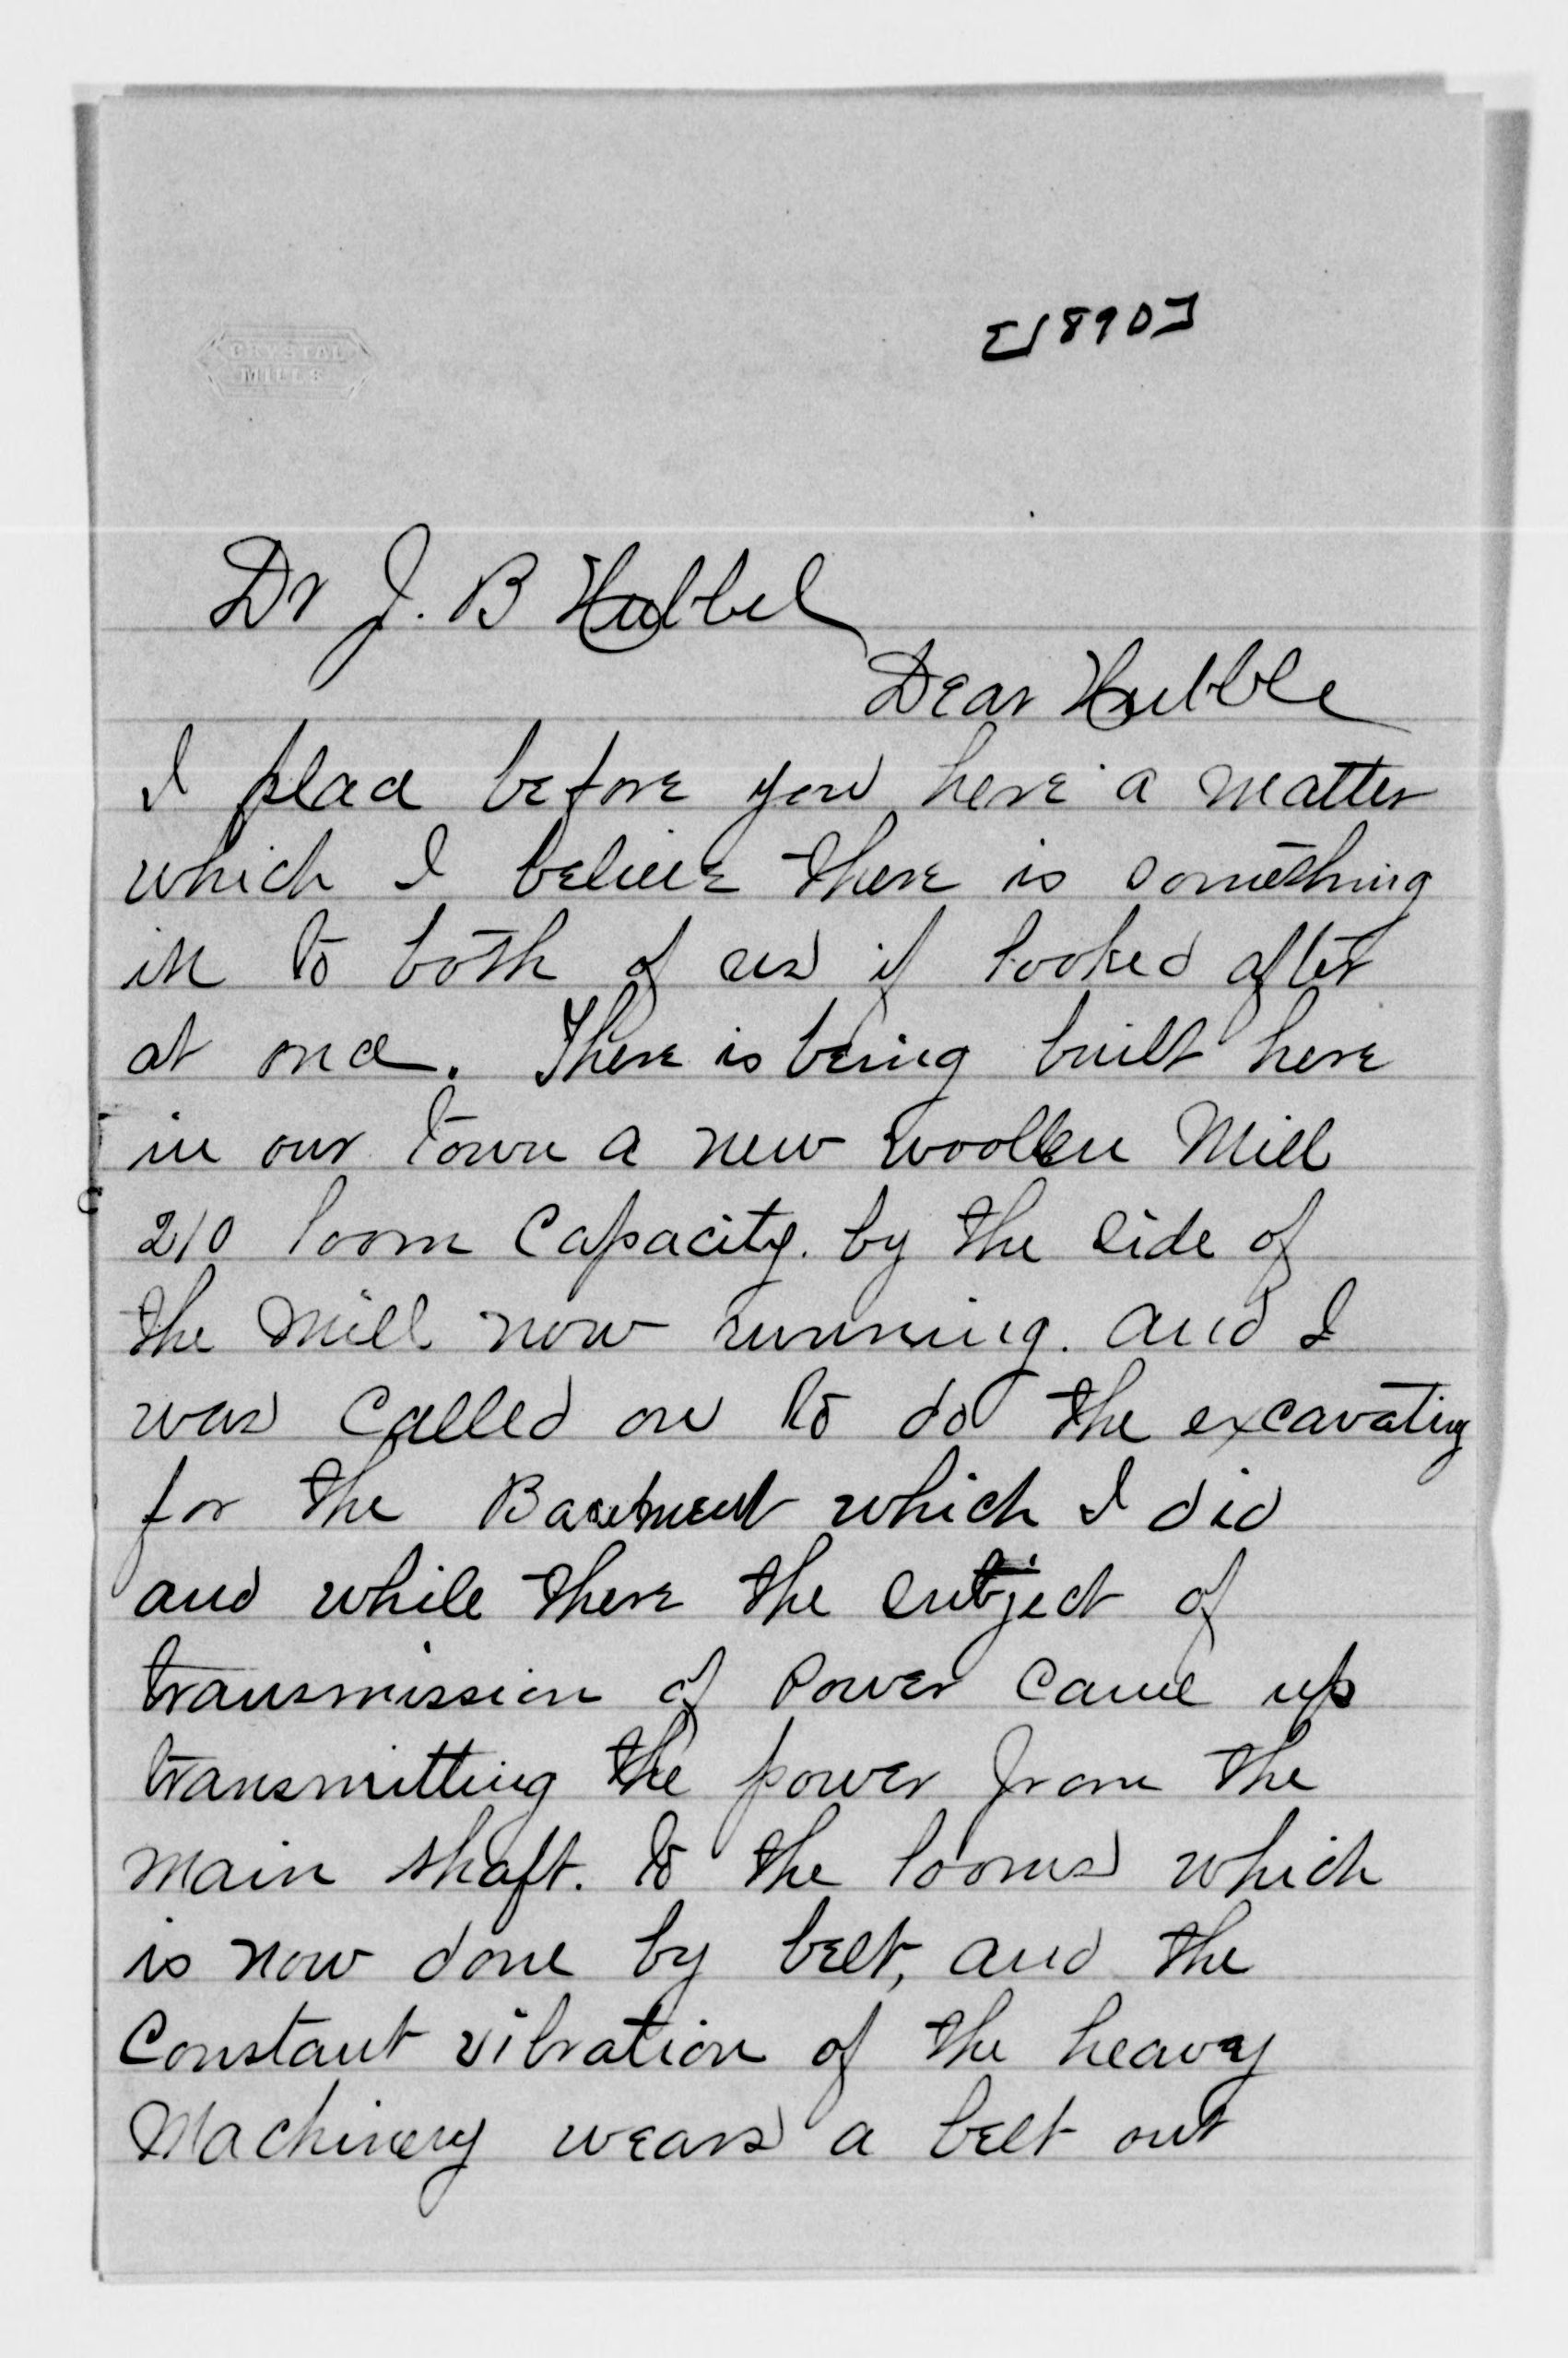 CRYSTAL
MILLS
[1890]
Dr J. B Hubbel
Dear Hubble
I place before you here a matter
which I believe there is something
in to both of us if looked after
at once. There is being built here
in our town a new woollen Mill
210 loom Capacity. by the side of
the Mill now running. and I
was Called on to do the excavating
for the Basement which I did
and while there the subject of
transmission of Power came up
transmitting the power from the
main shaft. to the looms which
is now done by belt, and the
Constant vibration of the heavy
Machinery wears a belt out